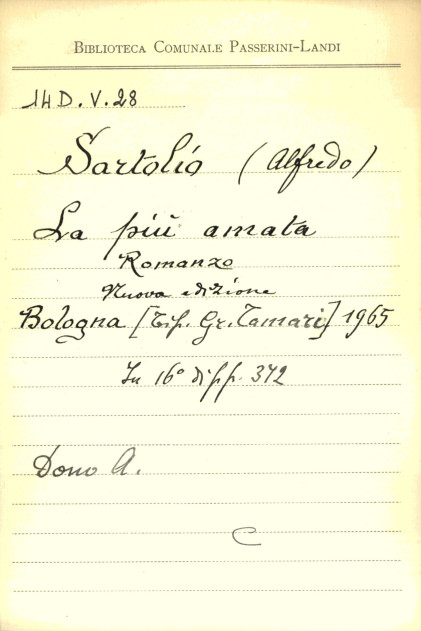 BIBLIOTECA COMUNALE PASSERINI-LANDI
14 D. V. 28
Sartolio (Alfredo)
La più amata
Romanzo
Nuova edizione
Bologna [Tip. Gr. Tamari] 1965
In 16° di pp. 372
Dono A.
C